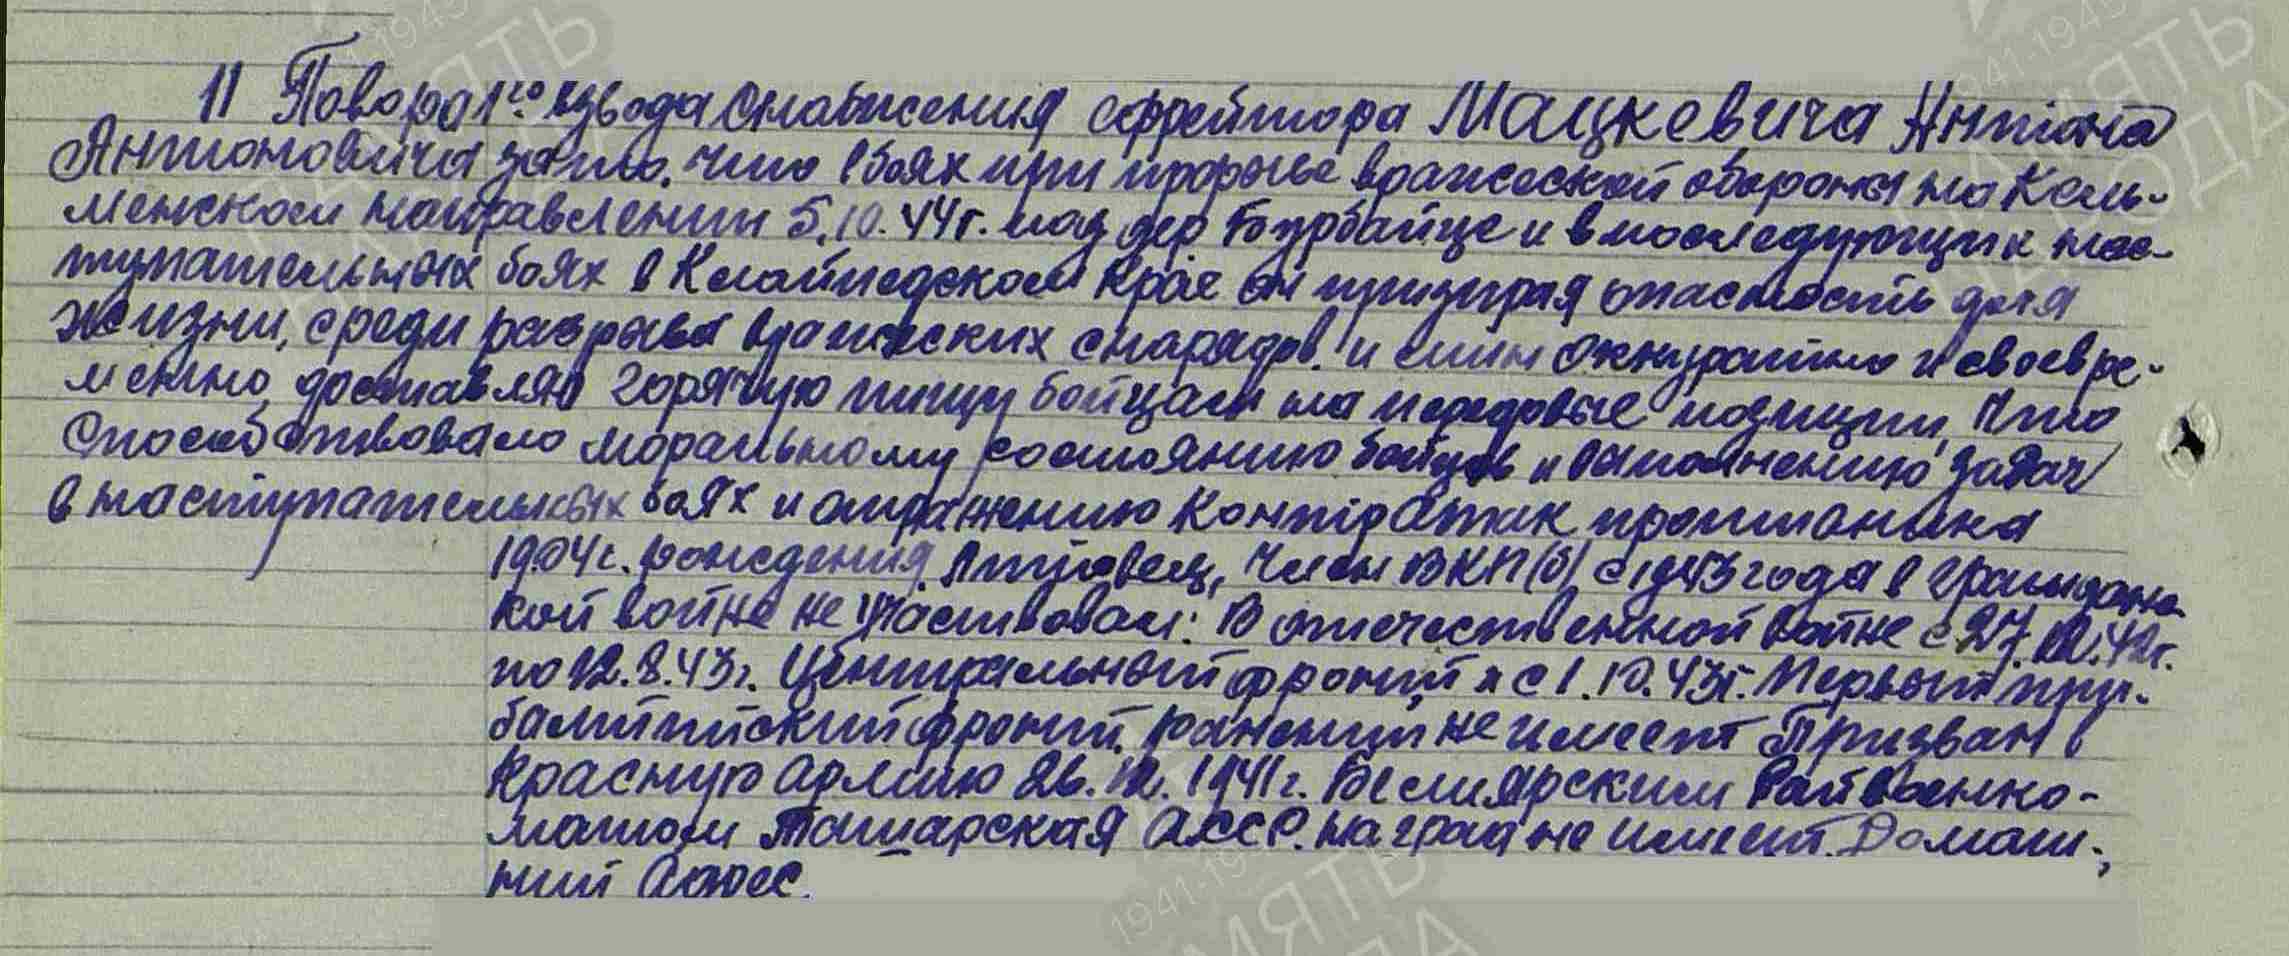 11 Повара 1го взвода снабжения ефрейтора Мацкевича Антона
Антоновича за то, что в боях при прорыве вражеской обороны на Кель-
менском направлении 5.10.44г. под дер Бурбайце и в последующих нас-
тупательных боях в Клайпедском крае он призирая опастность для
жизни, среди разрыва вражеских снарядов и мин аккуратно и своевре-
менно доставлял горячую пищу бойцам на передовые позиции, что
способствовало моральному состоянию бойцов и выполнению задач
в наступательных боях и отражению контратак противника
1904г. рождения, Литовец, член ВКП(б) с 1943 года в граждан-
кой войне не участвовал: В отечественной войне с 27.12.42г.
по 12.8.43г. Центральный фронт и с 1.10.43г. Первый при-
балтийский фронт, ранений не имеет Призван в
Красную армию 26.12.1941г. Билярским Райвоенко-
матом Татарская АССР. наград не имеет. Домаш-
ний Адрес.
1941-1945
ПАМЯТЬ
НАРОДА
1941-1945
ПАМЯТЬ
НАРОДА